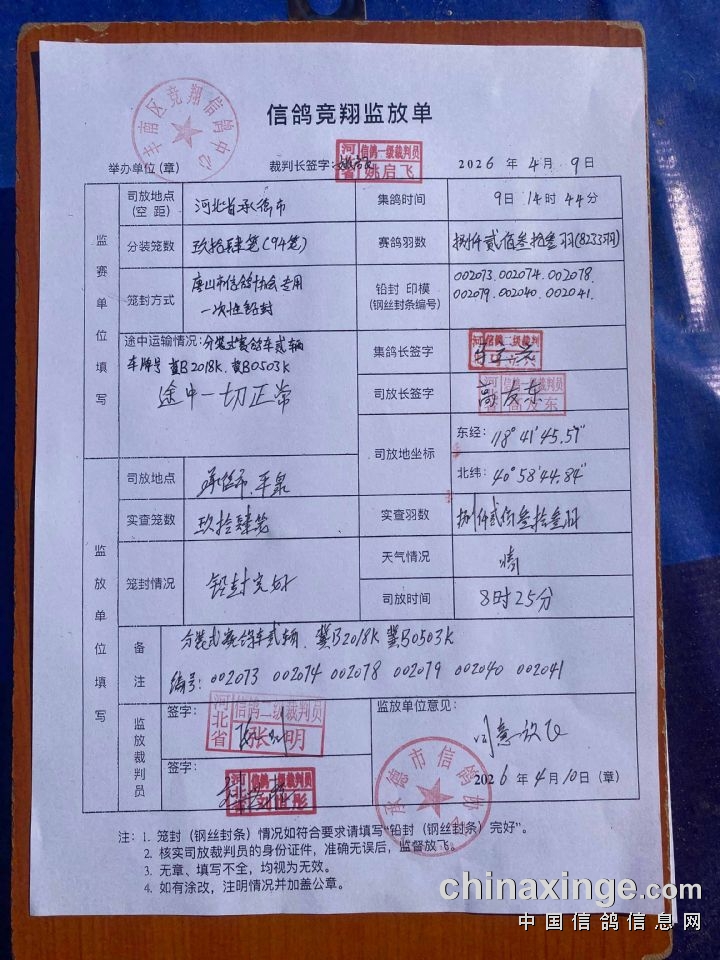 信鸽竞翔监放单
丰南区竞翔信鸽中心
举办单位(章) 裁判长签字: 2026 年 4月 9日
河北省 信鸽一级裁判员 姚启飞
司放地点(空 距) 河北省承德市 集鸽时间 9日 14时 44分
分装笼数 玖拾肆笼(94笼) 赛鸽羽数 捌仟贰佰叁拾叁羽(8233羽)
笼封方式 唐山市信鸽协会专用 一次性铅封 铅封 印模(钢丝封条编号) 002073.002074.002078.
002079.002040.002041.
监赛单位填写
途中运输情况: 分装式赛鸽车贰辆
车牌号 冀B2018K.冀B0503K
途中一切正常
集鸽长签字
信鸽二级裁判
司放长签字 高友东
河北 信鸽二级裁判员 高友东
司放地坐标 东经: 118°41'45.51"
北纬: 40°58'44.84"
监放单位填写
司放地点 承德市.平泉
实查笼数 玖拾肆笼 实查羽数 捌仟贰佰叁拾叁羽
笼封情况 铅封完好 天气情况 晴
司放时间 8时25分
备注 分装式赛鸽车贰辆.冀B2018K 冀B0503K
编号: 002073 002074 002078 002079 002040 002041
监放裁判员
签字:
河北省 信鸽二级裁判员 张明
签字:
信鸽一级裁判员
监放单位意见:
同意放飞
承德市信鸽协会
2026 年 4月10日(章)
注: 1. 笼封(钢丝封条)情况如符合要求请填写“铅封(钢丝封条)完好”。
2. 核实司放裁判员的身份证件,准确无误后,监督放飞。
3. 无章、填写不全,均视为无效。
4. 如有涂改,注明情况并加盖公章。
chinaxinge.com
中国信鸽信息网